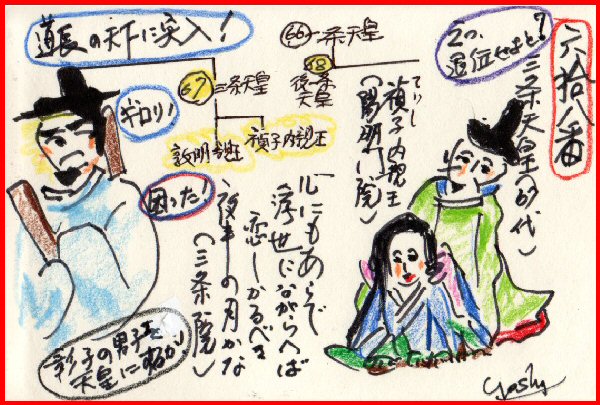 六拾八番
えっ、
退位せよと?
三条天皇(67代)
ていし
禎子内親王
(陽明門院)
66 一条天皇
68 後一条
天皇
67 三条天皇
禎子内親王
敦明親王
道長の天下に突入!
ギロリ!
困った!
心にもあらで
浮世にながらへば
恋しかるべき
夜半の月かな
(三条院)
彰子の男子を
天皇にするか!